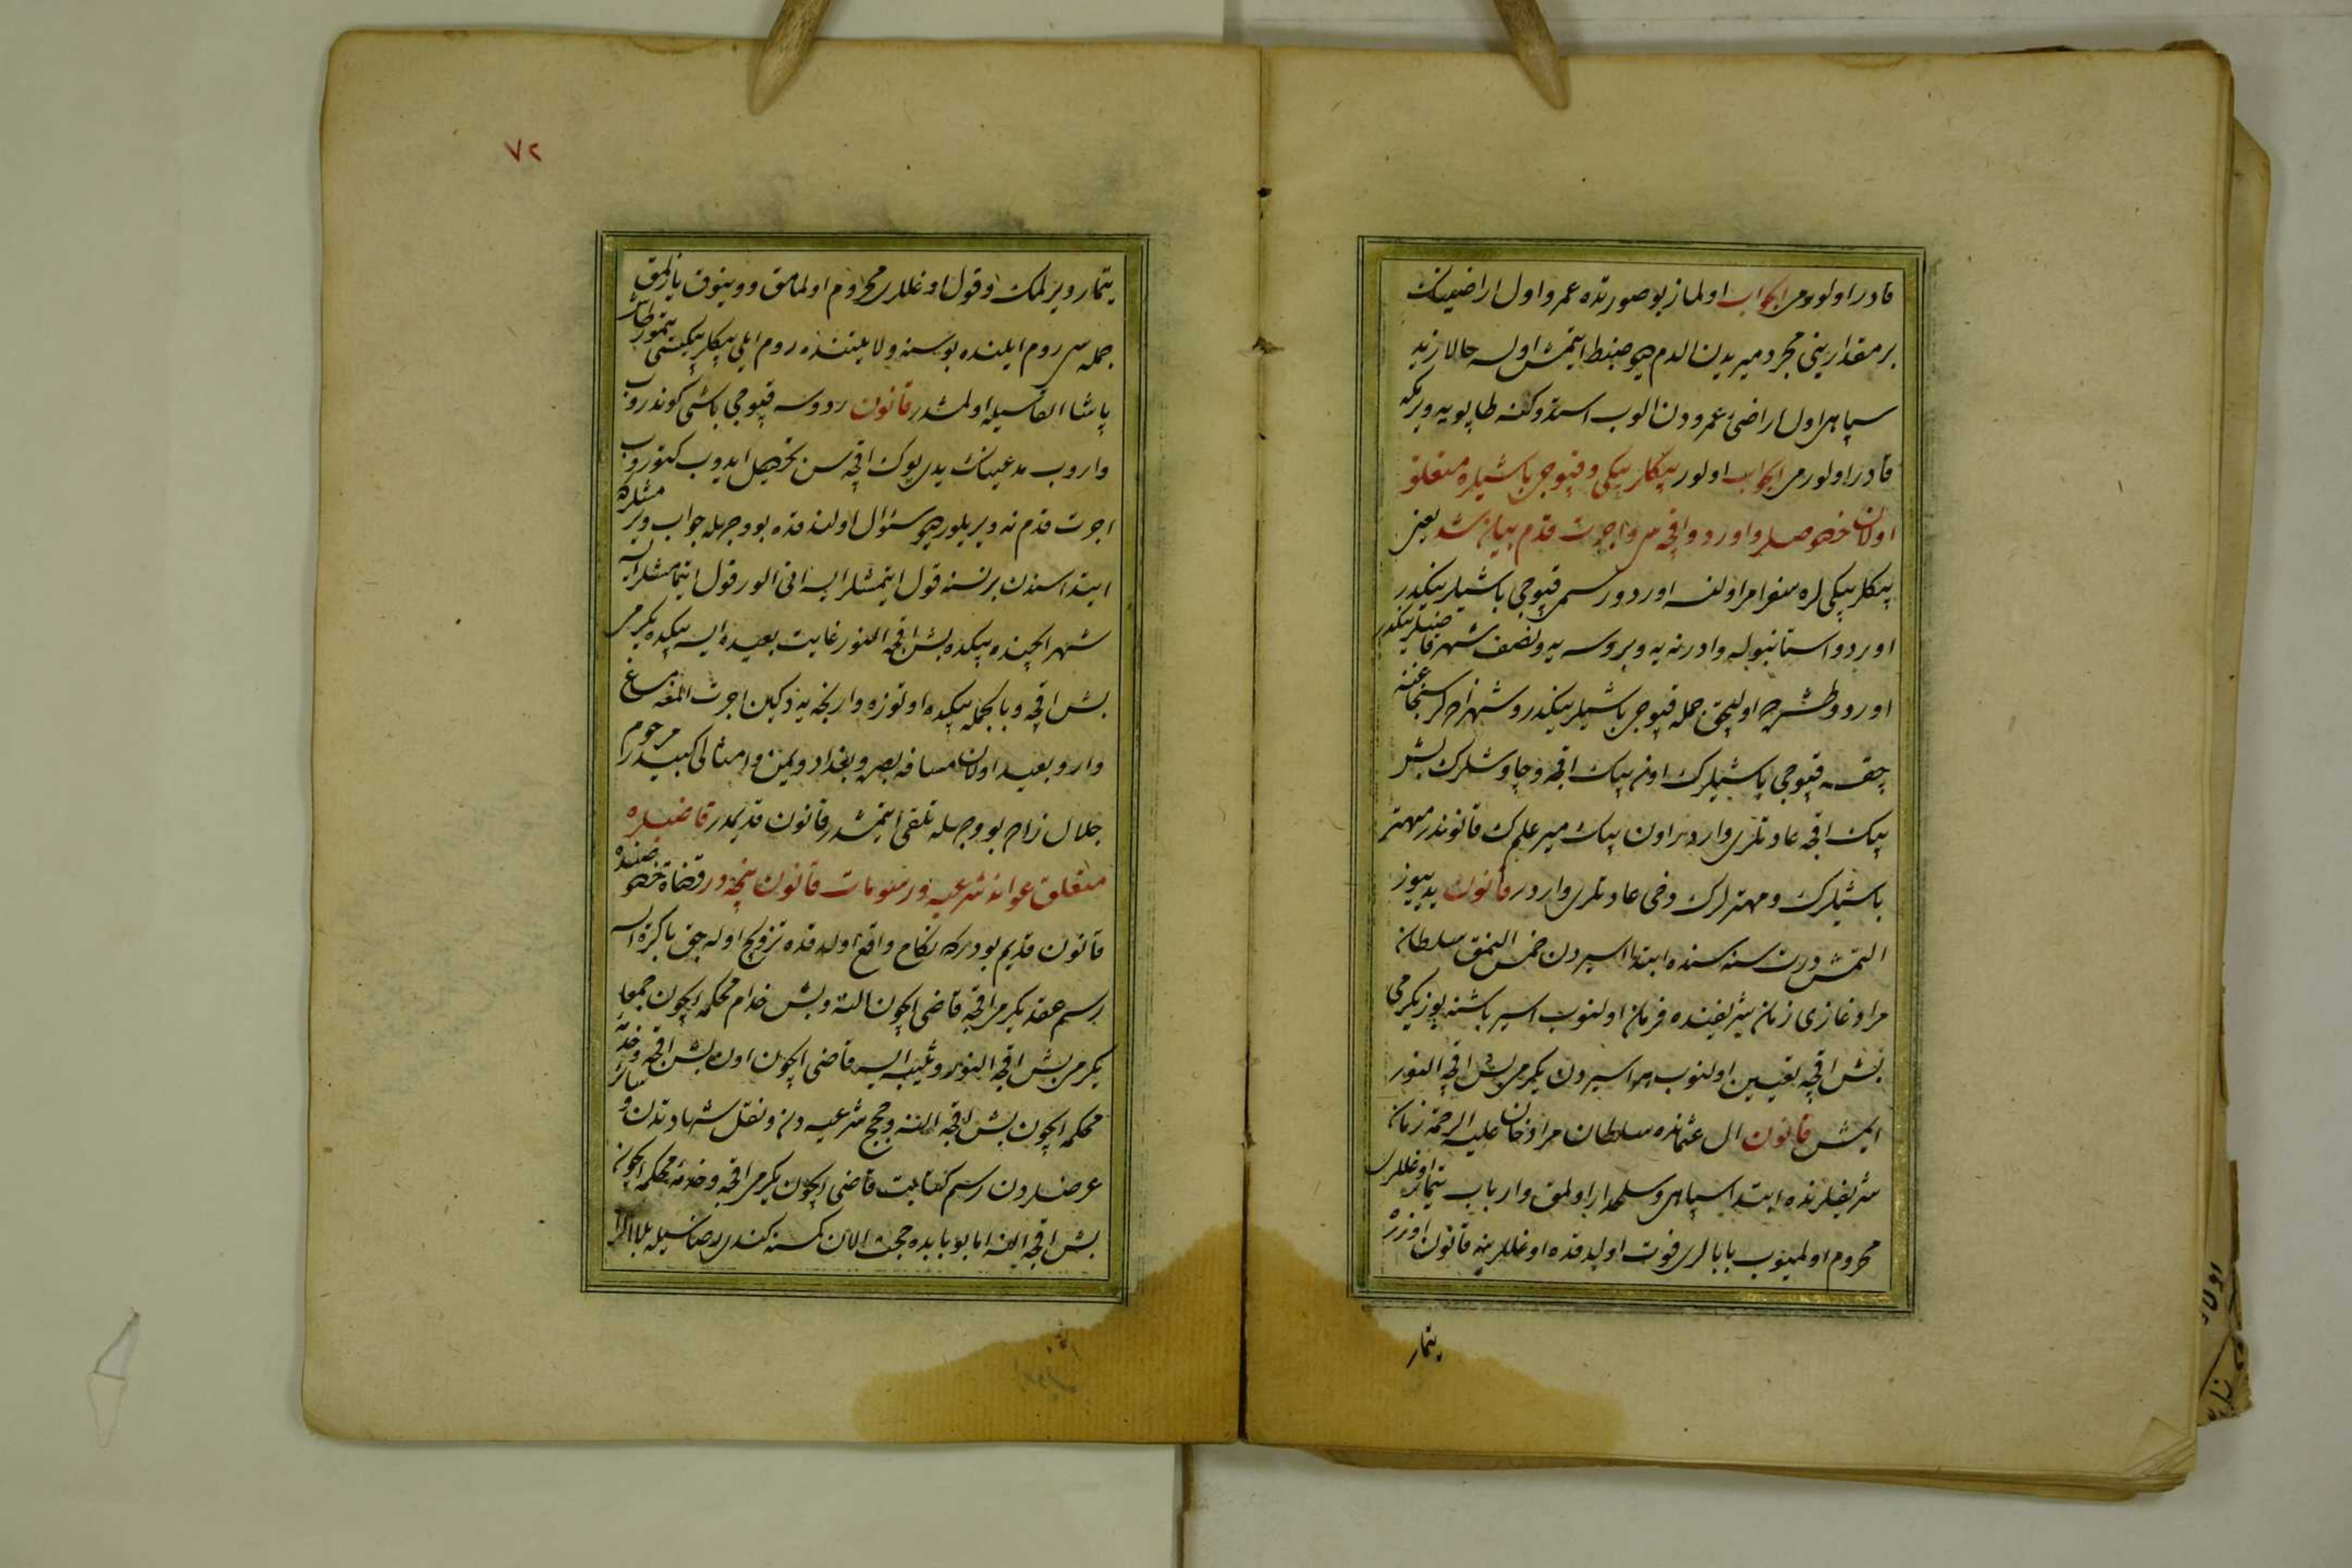 قادر اولورمی الجواب اولماز بو صورتده عمرو اول اراضینك
بر مقدارینی مجرد میریدن الدم دیو ضبط ایتمش اولسه حالا زید
سپاهی اول اراضیٔ عمرودن الوب استدوكنه طاپویه ویرمكه
قادر اولورمی الجواب اولور بیكلربیكی و قپوجی باشیلره متعلق
اولان خصوصلر و اوردو اقچه سی و اجرت قدم بیان شد یعنی
بیكلربیكی لره سفرلر اولنسه اوردو رسمی قپوجی باشیلرینكدر
اوردو استانبوله و ادرنه یه و بروسه یه و نصف شهر قاضیلرینكدر
اوردو طشره اولیجق جمله قپوجی باشیلرینكدر و شهزاده لر سنجاغنه
چقسه قپوجی باشیلرك اون بیك اقچه و چاوشلرك بش
بیك اقچه عادتلری واردر اون بیك میر علمك قانوندر مهتر
باشیلرك و مهترلرك دخی عادتلری واردر قانون یدییوز
التمش درت سنه سنده ابتدا اسیردن خمس النمق سلطان
مراد غازی زمان شریفنده فرمان اولنوب اسیر باشنه یوز یكرمی
بش اقچه تعیین اولنوب هر اسیردن یكرمی بش اقچه النور
ایمش قانون ال عثمانده سلطان مراد خان علیه الرحمه زمان
شریفلرنده ابتدا سپاهی و سلحدار اولمق و ارباب تیمار اوغللری
محروم اولمیوب بابالری فوت اولدقده اوغللرینه قانون اوزره
تیمار
٧٢
تیمار ویرلمك و قول اوغللری محروم اولمامق و وینوق یازلمق
جمله سی روم ایلنده بوسنه ولایتنده روم ایلی بیكلربیكیسی تیمورطاش
پاشا القاسیله اولمشدر قانون ردوسه قپوجی باشی كوندروب
واروب مدعینك یدی یوك اقچه سن تحصیل ایدوب كتوروب
اجرت قدم نه ویریلور دیو سئوال اولندقده بو وجهله جواب ویرمشلركه
ابتداسندن بر نسنه قول ایتمشلر ایسه انی الور قول ایتمامشلر ایسه
شهر ایچنده بیكده بش اقچه النور غایت بعیده ایسه بیكده یكرمی
بش اقچه و بالجمله بیكده اوتوزه وارنجه یه دكین اجرت المغه مساغ
وار و بعید اولان مسافه بصره و بغداد و یمن و امثالی كبیدر مرحوم
جلال زاده بو وجهله تلقی ایتمشدر قانون قدیمدر قاضیلره
متعلق عوائد شرعیه و رسومات قانون نیجه در قضاة خصوصنده
قانون قدیم بودركه نكاح واقع اولدقده تزویج اوله جق باكره ایسه
رسم عقد یكرمی اقچه قاضی ایچون النه و بش خدام محكمه ایچون جمعا
یكرمی بش اقچه النور و ثیبه ایسه قاضی ایچون اون بش اقچه و خدمه
محكمه ایچون بش اقچه النه و حجج شرعیه دن و نقل شهادتدن و سائر
عرضلردن رسم كتابت قاضی ایچون یكرمی اقچه و خدمه محكمه ایچون
بش اقچه النه اما بو بابده حجت الان كمسنه كندی رضاسیله بلا اكراه